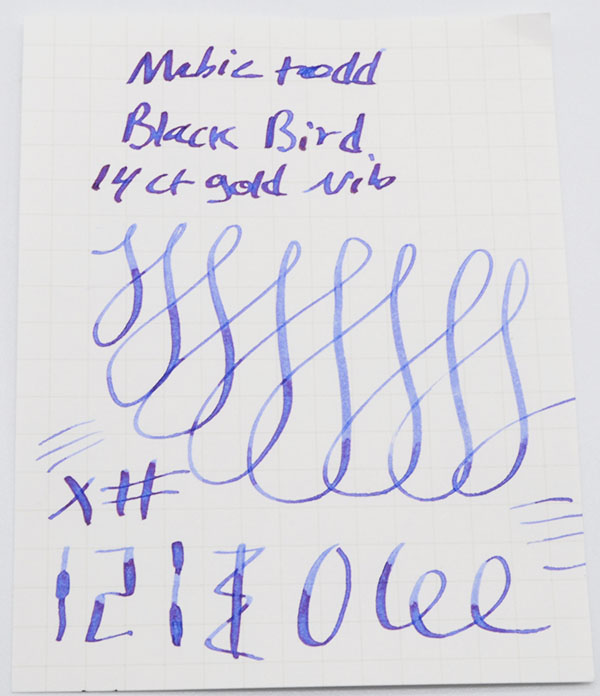 Mabie todd
Black Bird.
14 ct gold Nib
X #